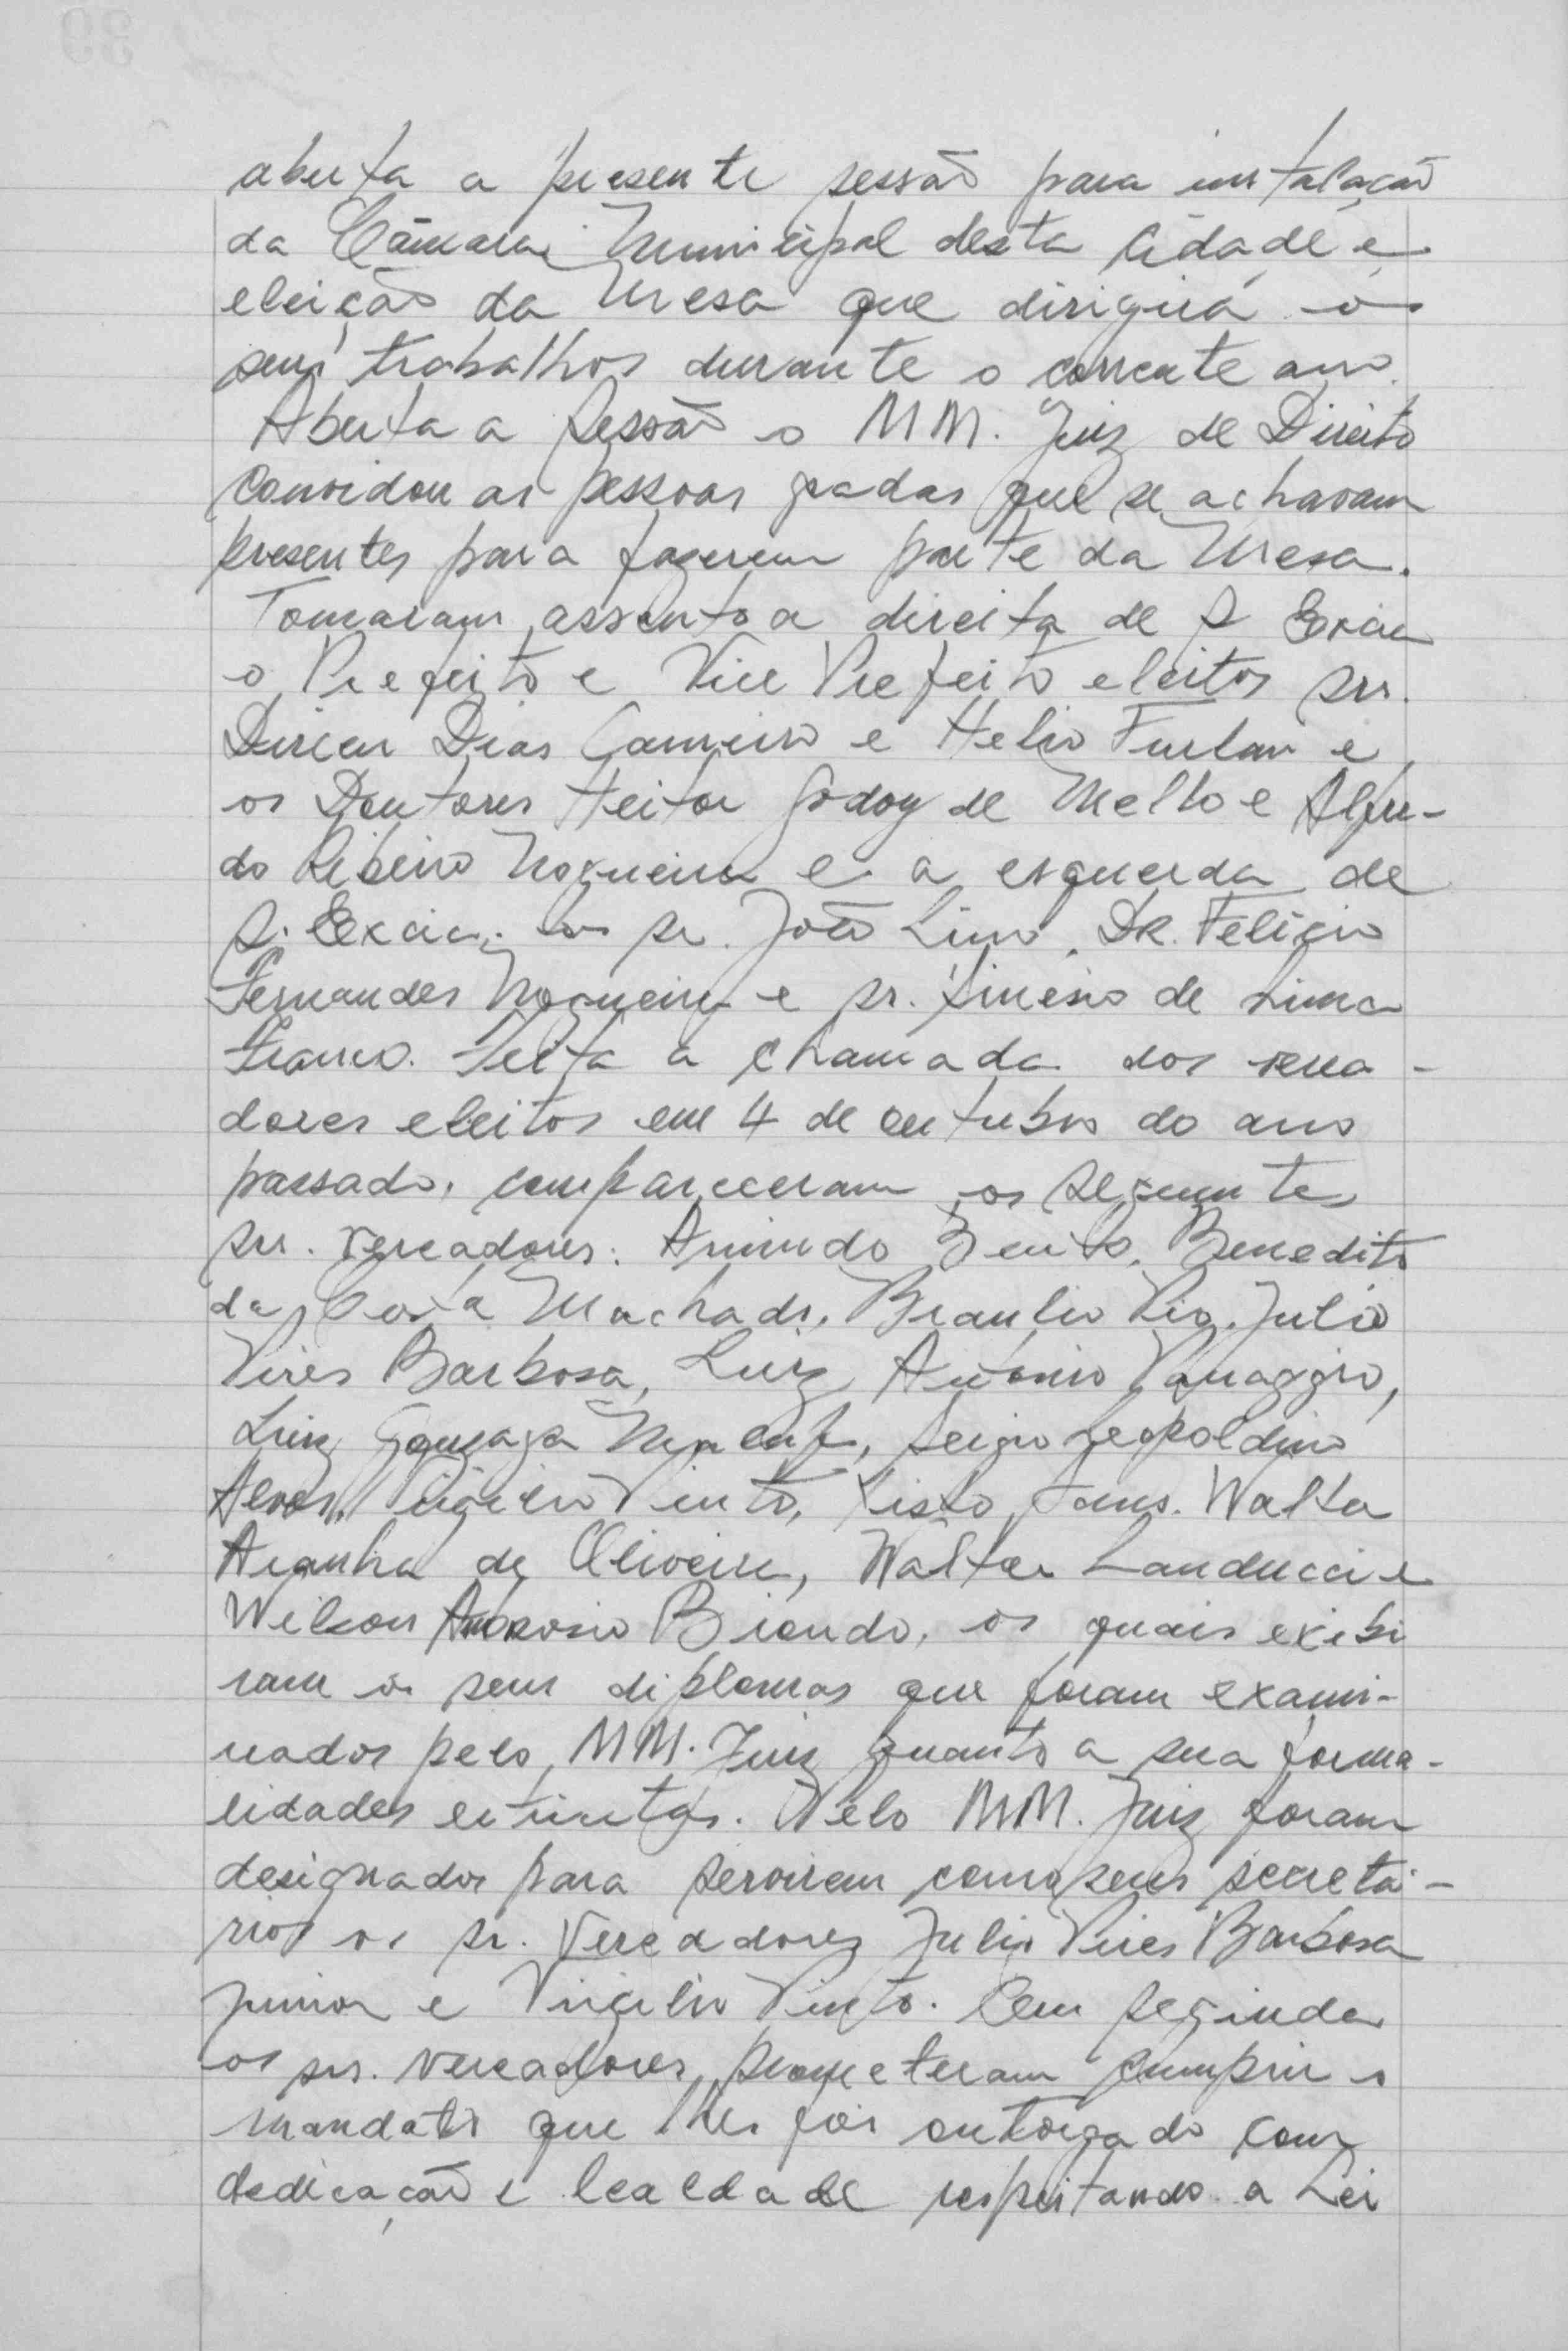 aberta a presente sessão para instalação
da Câmara Municipal desta Cidade e
eleição da Mesa que dirigirá os
seus trabalhos durante o corrente ano.
Aberta a Sessão o MM. Juiz de Direito
convidou as pessoas gradas que se achavam
presentes para fazerem parte da Mesa.
Tomaram assento a direita de S Excia
o Prefeito e Vice Prefeito eleitos srs.
Dirceu Dias Carneiro e Helio Furlan e
os Doutores Heitor Godoy de Mello e Alfre-
do Ribeiro Nogueira e a esquerda de
S. Excia. os sr. João Lino, DR. Felicio
Fernandes Nogueira e sr. Sinesio de Lima
Franco. Feita a chamada dos verea-
dores eleitos em 4 de outubro do ano
passado, compareceram os seguintes
srs. vereadores: Arnindo Bento, Benedito
da Costa Machado, Braulio Pio, Julio
Pires Barbosa, Luiz Antonio Panaggio,
Luiz Gonzaga, Sergio Leopoldino
Alves, Virgilio Pinto, Xisto, Walter
Aranha de Oliveira, Walter Landucci e
Wilson Ambrosio Biondo, os quais exibi
ram os seus diplomas que foram exami-
nados pelo MM. Juiz quanto a sua forma-
lidades. Pelo MM. Juiz foram
designados para servirem como seus secretá-
rios os sr. Vereadores Julio Pires Barbosa
Junior e Virgilio Pinto. Em seguida
os srs. vereadores prometeram cumprir o
mandato que lhes foi outorgado com
dedicação e lealdade respeitando a Lei